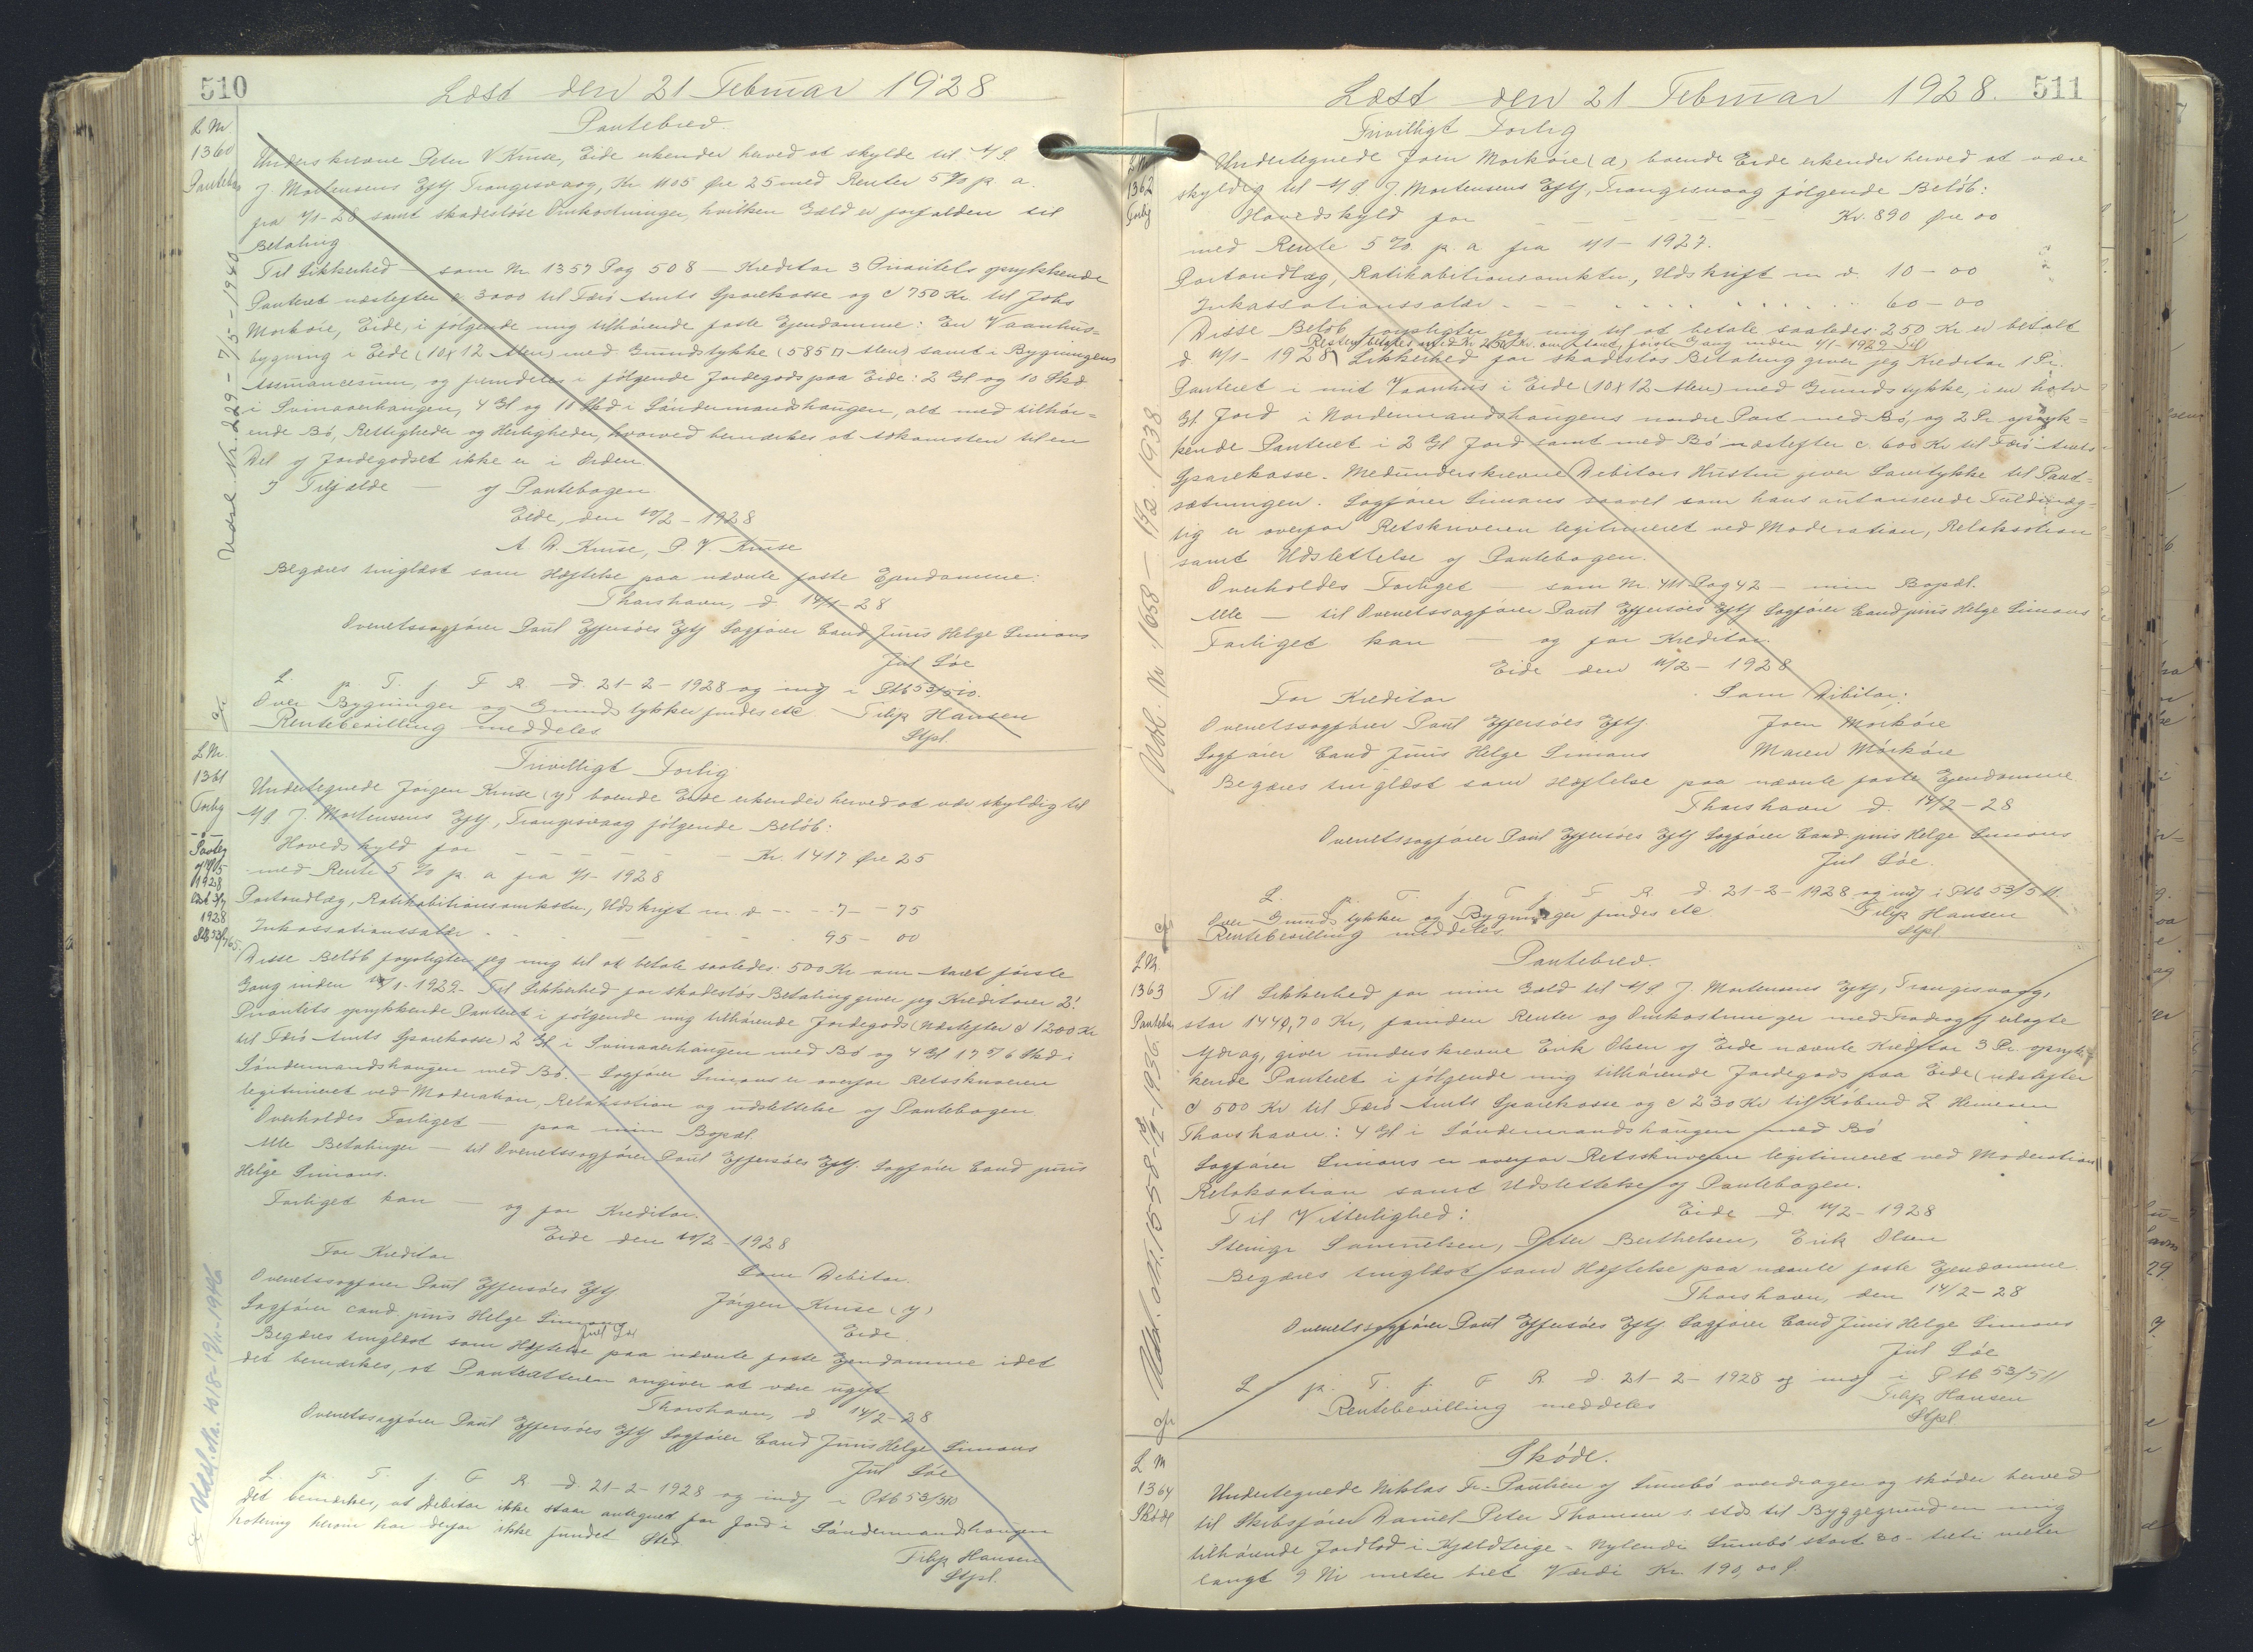 510
Læst den 21 Februar 1928
Pantebrev.
L Nr.
1360
Pantebr
Underskrevne Peter V Kruse, Eide erkender herved at skylde til A/S.
J. Mortensens Eftf Trangisvaag, Kr 1105 Øre 25 med Renter 5 % p. a.
fra 1/1-28 samt skadesløse Omkostninger, hvilken Gæld er forfalden til
Betaling.
Til Sikkerhed — som Nr. 1357 Pag 508 — Kreditor 3 Prioritets oprykkende
Panteret næstefter c. 3000 til Færø Amts Sparekasse og c 750 Kr. til Johs
Morkøre, Eide, i følgende mig tilhørende faste Ejendomme: En Vaanhus=
bygning i Eide (10 x 12 Alen) med Grundstykke (585 □ Alen) samt i Bygningens
Assurancesum, og fremdeles i følgende Jordegods paa Eide: 2 Gl og 10 Skd
i Svinaaerhaugen, 4 Gl og 11 Skd i Søndermandshaugen, alt med tilhør=
ende Bø, Rettigheder og Herligheder, hvorved bemærkes at Adkomsten til en
Del af Jordegodset ikke er i Orden.
I Tilfælde — af Pantebogen
Eide, den 10/2 - 1928
A. D. Kruse, P V. Kruse
Begæres tinglæst som Hæftelse paa nævnte faste Ejendomme:
Thorshavn, d. 14/1-28
Overretssagfører Poul Effersøes Eftf Sagfører Cand Juris Helge Simons
Jul Søe
L. p. T. f. F R. d. 21-2-1928 og indf i Ptb 53/510.
Over Bygninger og Grundstykker findes etc Filip Hansen
Rentebevilling meddeles Stpl.
Udsl. Nr. 229 - 7/5 - 1940
L Nr.
1361
Forlig
Frivilligt Forlig
Undertegnede Jørgen Kruse (y) boende Eide erkender herved at vær skyldig til
A/S J. Mortensens Eftf, Trangisvaag følgende Beløb:
Hovedskyld for — Kr. 1417 Øre 25
med Rente 5 % p. a fra 1/1- 1928
Portoudlæg, Ratihabitionsomkstn, Udskrift m d - - 7 - 75
Inkassationssalær - 95 - 00
1928
1928
Disse Beløb forpligter jeg mig til at betale saaledes: 500 Kr om Aaret første
Gang inden 1/1-1929. Til Sikkerhed for skadesløs Betaling giver jeg Kreditorer 2!
Prioritets oprykkende Panteret i følgende mig tilhørende Jordegods (Næstefter c 1200 Kr
til Færø Amts Sparekasse) 2 Gl i Svinaaerhaugen med Bø og 4 Gl 17 5/6 Skd i
Søndermandshaugen med Bø. - Sagfører Simons er overfor Retsskriveren
legitimeret ved Moderation, Relaksation og udslettelse af Pantebogen
Overholdes Forliget — paa min Bopæl.
Alle Betalinger — til Overretssagfører Poul Effersøes Eftf. Sagfører Cand juris
Helge Simons.
Forliget kan — og for Kreditor.
Eide den 10/2 - 1928
For Kreditor Som Debitor.
Overretssagfører Poul Effersøes Eftf Jørgen Kruse (y)
Sagfører cand juris Helge Simons Eide.
Jul Søe
Begæres tinglæst som Hæftelse paa nævnte faste Ejendomme idet
det bemærkes, at Pantsætteren angiver at være ugift
Thorshavn, d 14/2-28
Overretssagfører Poul Effersøes Eftf Sagfører Cand Juris Helge Simons
Jul Søe
L. p. T. f. F R. d. 21-2-1928 og indf i Ptb 53/510
Det bemærkes, at Debitor ikke staar antegnet for Jord i Søndermandshaugen
Notering herom har derfor ikke fundet Sted
Filip Hansen
Stpl.
511
Læst den 21 Februar 1928.
Frivilligt Forlig
1362
Forlig
Undertegnede Joen Morkøre (a) boende Eide erkender herved at være
skyldig til A/S J. Mortensens Eftf, Trangisvaag følgende Beløb:
Hovedskyld for — Kr. 890 Øre 00
med Rente 5 %. p. a fra 1/1- 1927.
Portoudlæg, Ratihabitionsomktn, Udskrift m d. 10 - 00
Inkassationssalær - 60 - 00
Disse Beløb forpligter jeg mig til at betale saaledes: 250 Kr er betalt
Resten betales med Kr 250 Kr. om Aaret, første Gang inden 1/1-1929 Til
d 11/1- 1928 Sikkerhed for skadesløs Betaling giver jeg Kreditor 1 Pr.
Panteret i mit Vaanhus i Eide (10 x 12 Alen) med Grundstykke, i en halv
Gl Jord i Nordermandshaugens nordre Part med Bø, og 2 Pr opryk=
kende Panteret i 2 Gl Jord samt med Bø næstefter c. 600 Kr til Færø Amts
Sparekasse. Medunderskrevne Debitors Hustru giver Samtykke til Pant=
sætningen. Sagfører Simons saavel som hans autoriserede Fuldmæg=
tig er overfor Retskriveren legitimeret ved Moderation, Relaksation
samt Udslettelse af Pantebogen.
Overholdes Forliget — som Nr. 411 Pag 42 — min Bopæl.
Alle — til Overretssagfører Poul Effersøes Eftf Sagfører Cand juris Helge Simons
Forliget kan — og for Kreditor.
Eide den 11/2 - 1928
For Kreditor Som Debitor:
Overretssagfører Poul Effersøes Eftf. Joen Morkøre
Sagfører Cand Juris Helge Simons Maren Mørkøre
Begæres tinglæst som Hæftelse paa nævnte faste Ejendomme
Thorshavn d. 14/2-28
Overretssagfører Poul Effersøes Eftf Sagfører Cand juris Helge Simons
Jul Søe.
L. p. T. f. F. R. d. 21-2-1928 og indf i Ptb 53/511
Over Grundstykker og Bygninger findes etc Filip Hansen
Rentebevilling meddeles Stpl
Udsl. Nr. 1658 - 1938
L Nr.
1363
Pantebr
Pantebrev.
Til Sikkerhed for min Gæld til A/S J. Mortensens Eftf, Trangisvaag,
stor 1440,70 Kr, foruden Renter og Omkostninger med Fradrag af erlagte
Afdrag, giver underskrevne Erik Olsen af Eide nævnte Kreditor 3 Pr opryk=
kende Panteret i følgende mig tilhørende Jordegods paa Eide (næstefter
c 500 Kr til Færø Amts Sparekasse og c 230 Kr til Købmd Z Heinesen
Thorshavn: 4 Gl i Søndermandshaugen med Bø
Sagfører Simons er overfor Retsskriveren legitimeret ved Moderation
Relaksation samt Udslettelse af Pantebogen.
Til Vitterlighed: Eide d. 11/2 - 1928
Steingr Samuelsen, Peter Berthelsen, Erik Olsen
Begæres tinglæst som Hæftelse paa nævnte faste Ejendomme.
Thorshavn, den 14/2-28
Overretssagfører Poul Effersøes Eftf Sagfører Cand Juris Helge Simons
Jul Søe
L p. T. f. F R. d. 21-2-1928 og indf i Ptb 53/511
Rentebevilling meddeles Filip Hansen
Stpl
L Nr
1364
Skøde
Skøde.
Undertegnede Niklas Fr. Poulsen af Sumbø overdrager og skøder herved
til Skibsfører Daniel Peter Thomsen s. stds til Byggegrund en mig
tilhørende Jordlod i Kjældberge - Nylendi Sumbø stort 30 - treti meter
langt 9 Ni meter bret Værdi Kr. 190,00 Ø.